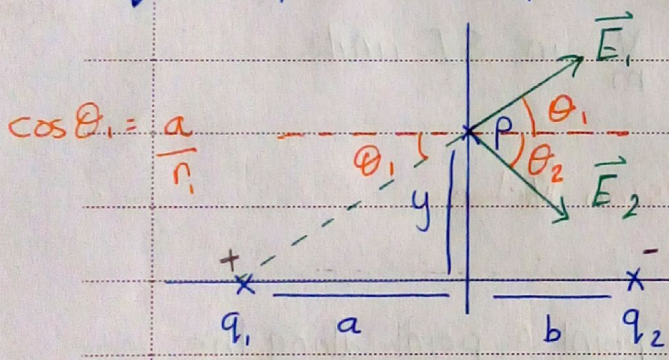 E₁
cosθ₁ = a / r₁
θ₁ P θ₁
θ₂
y E₂
+ -
q₁ a b q₂